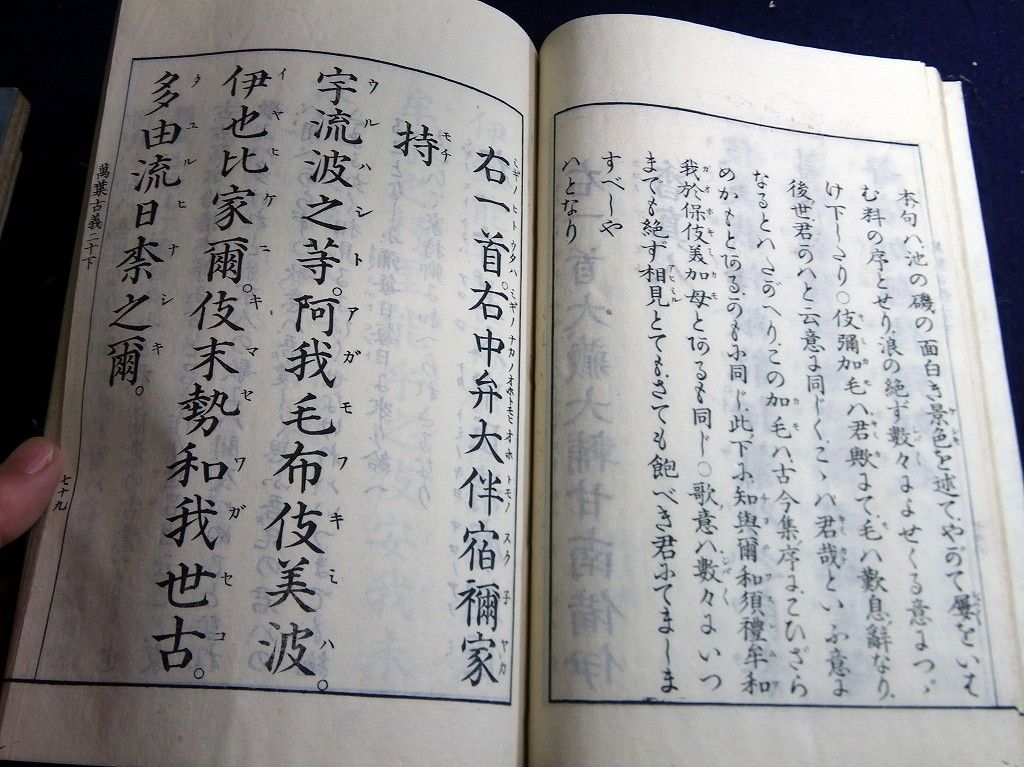 本句ハ、池の磯の面白き景色を述て、やがて屡といは
む料の序とせり、浪の絶ず數々によせくる意につゞ
け下したり○伎彌加毛ハ君歟にて、毛ハ歎息辭なり、
後世、君かハと云意に同じく、こゝハ君哉といふ意に
なるとハたがへり、この加毛ハ古今集序に、こひざら
めかもとあるかもに同じ、此下に知與爾和須禮牟和
我於保伎美加母とあるも同じ○歌意ハ數々にいつ
までも絶ず相見とても、さても飽べき君にてましま
すべしや
ハとなり
右一首。右中弁大伴宿禰家
持
宇流波之等。阿我毛布伎美波。
伊也比家爾。伎末勢和我世古。
多由流日柰之爾。
萬葉古義二十下
七十九